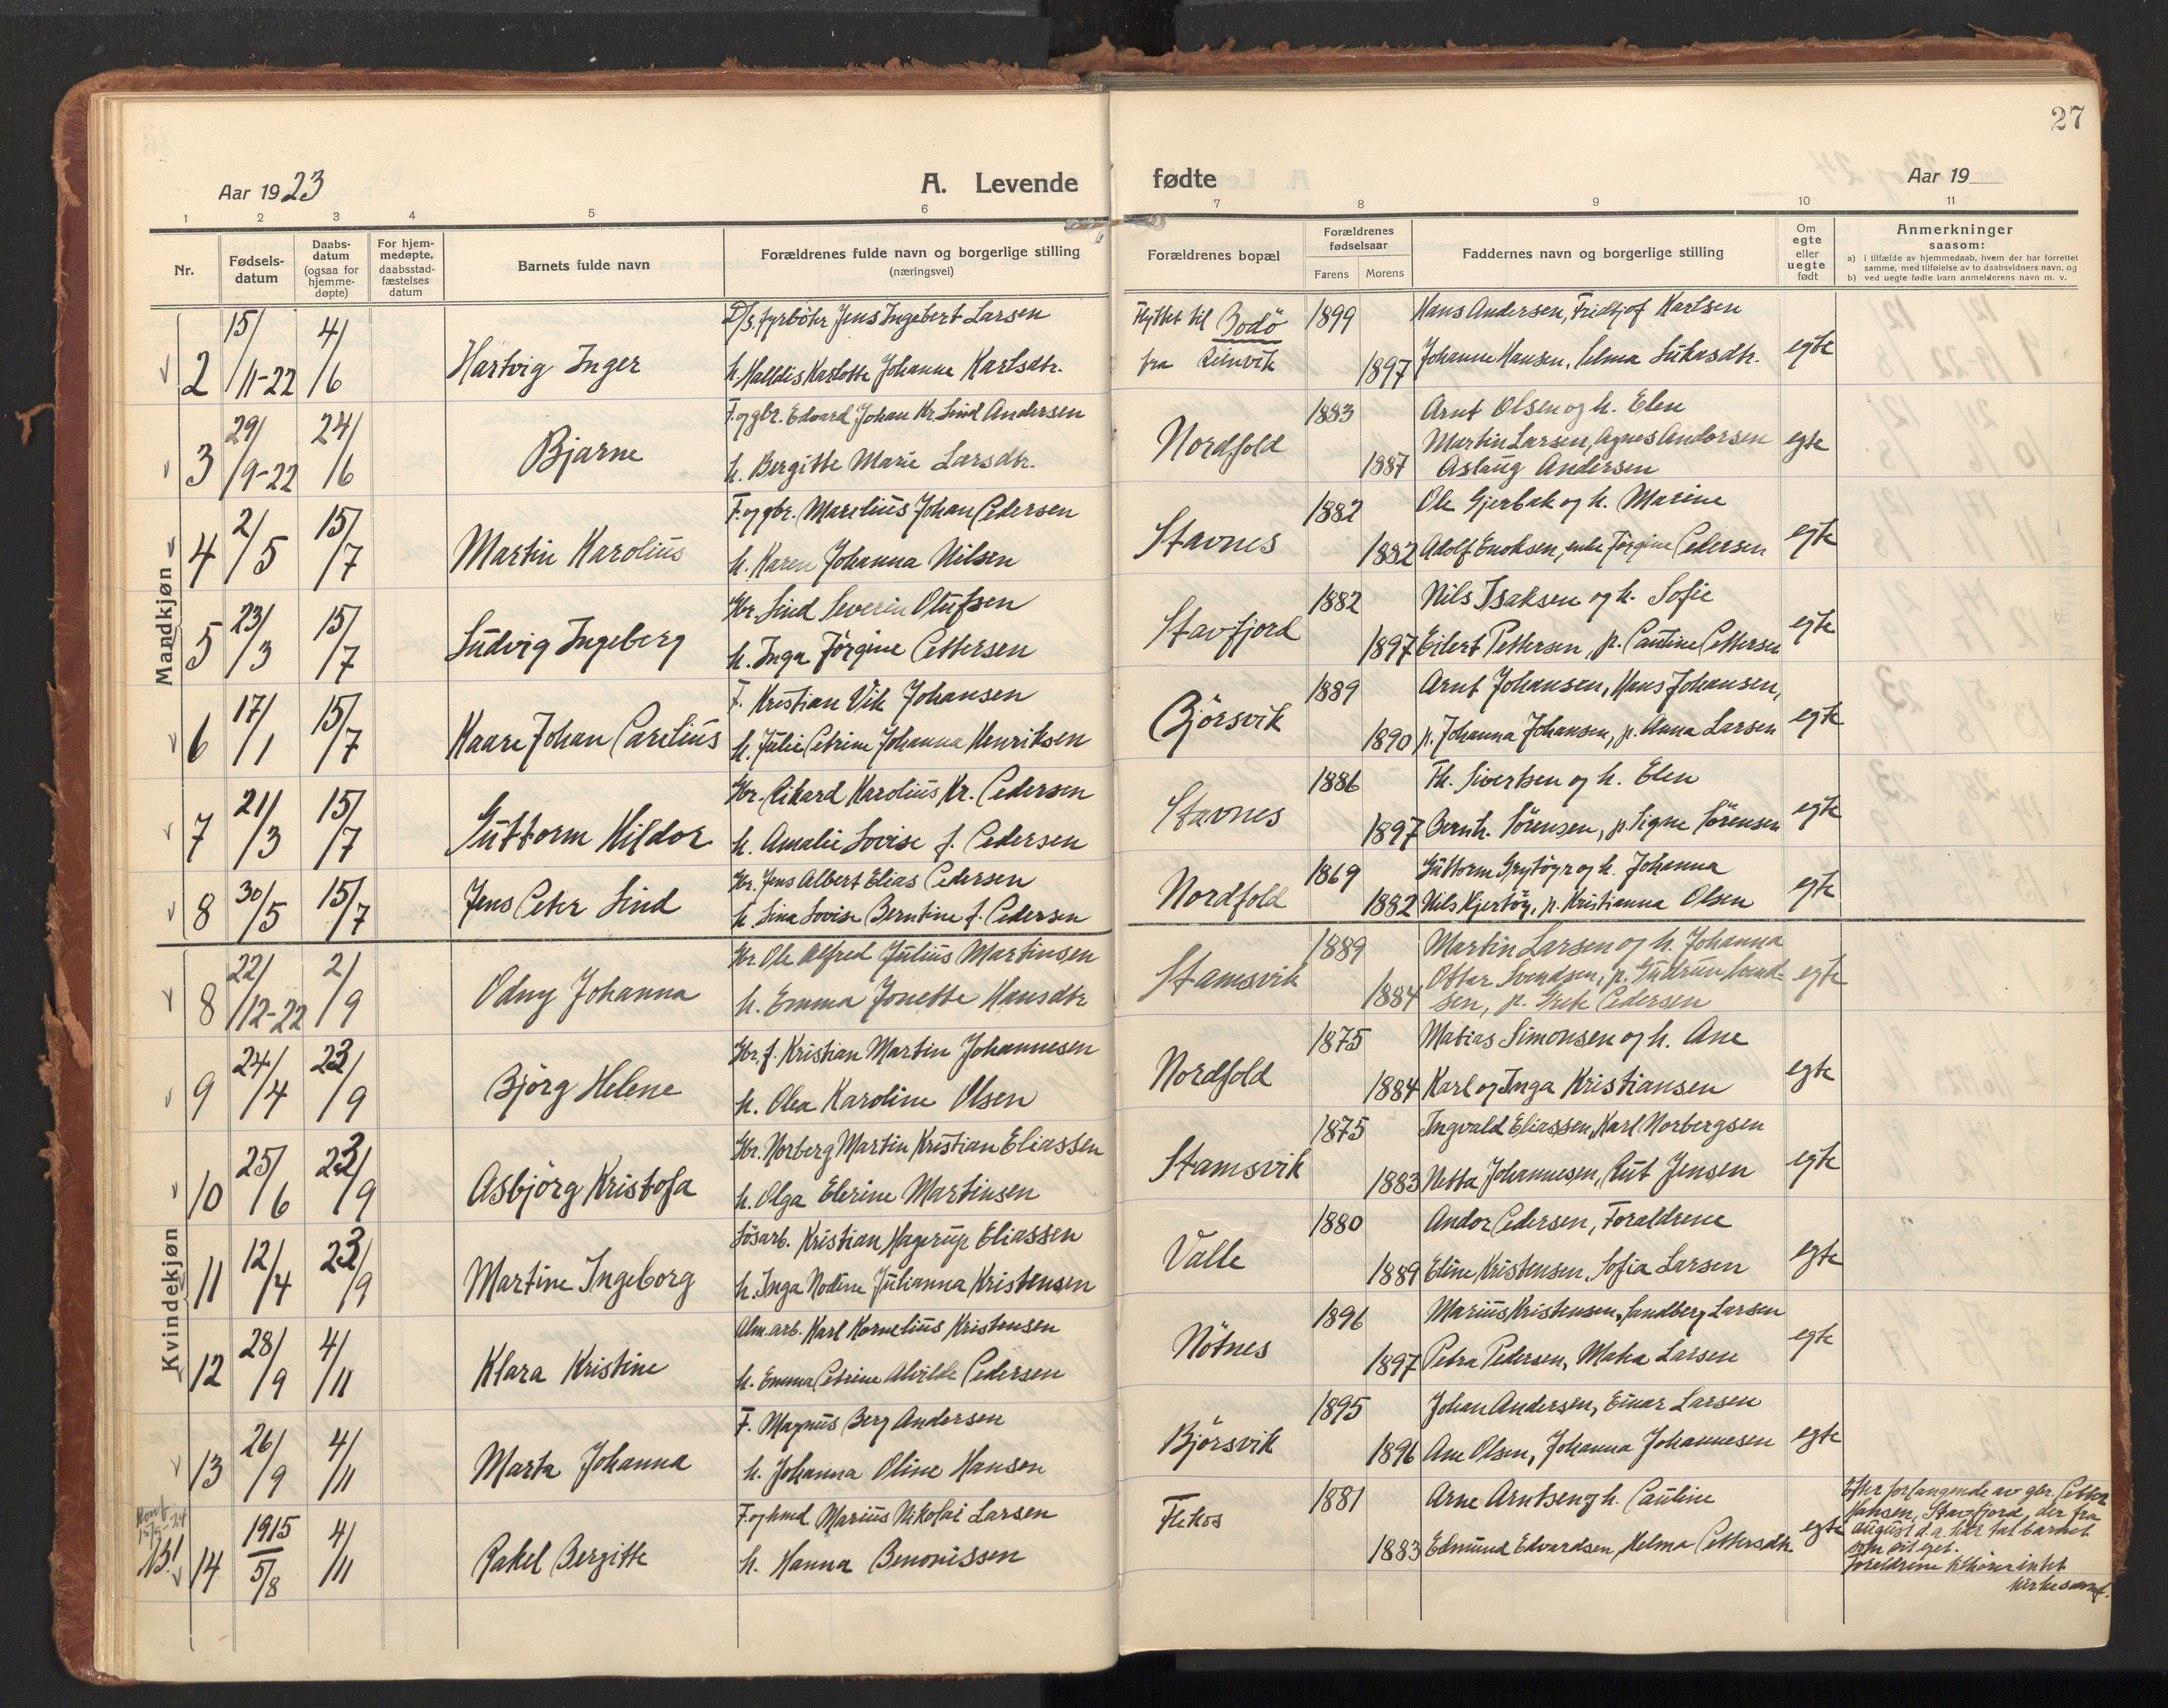 27
Aar 1923 A. Levende fødte Aar 19
1 2 3 4 5 6 7 8 9 10 11
Nr. Fødsels-datum Daabs-datum (ogsaa for hjemme-døpte) For hjem-medøpte, daabsstad-fæstelses datum Barnets fulde navn Forældrenes fulde navn og borgerlige stilling (næringsvei) Forældrenes bopæl Forældrenes fødselsaar Farens Morens Faddernes navn og borgerlige stilling Om egte eller uegte født Anmerkninger saasom:
a) i tilfælde av hjemmedaab, hvem der har forrettet samme, med tilføielse av to daabsvidners navn, og
b) ved uegte fødte barn anmelderens navn m. v.
Mandkjøn
2 15/11-22 4/6 Hartvig Inger D/S. fyrbøter Jens Ingebert Larsen Flyttet til Bodö 1899 Hans Andersen, Fridtjof Karlsen
h. Halldis Karlotte Johanne Karlsdtr. fra Leinvik 1897 Johanne Hansen, Selma Lukasdtr. egte
3 29/9-22 24/6 Bjarne F. og gbr. Edvard Johan Kr. Lind Andersen Nordfold 1883 Arnt Olsen og h. Elen
h. Bergitte Marie Larsdtr. 1887 Martin Larsen, Agnes Andersen egte
Aslaug Andersen
4 2/5 15/7 Martin Karolius F. og gbr. Marelius Johan Pedersen Stavnes 1882 Ole Gjerbak og h. Marine
h. Karen Johanna Nilsen 1882 Adolf Enoksen, enke Jörgine Pedersen egte
5 23/3 15/7 Ludvig Ingeberg Gbr. Lind Severin Olufsen Stavfjord 1882 Nils Isaksen og h. Sofie
h. Inga Jörgine Pettersen 1897 Eilert Pettersen, p. Pauline Pettersen egte
6 17/1 15/7 Kaare Johan Parelius F. Kristian Vik Johansen Björsvik 1889 Arnt Johansen, Hans Johansen,
h. Julie Petrine Johanna Henriksen 1890 p. Johanna Johansen, p. Anna Larsen egte
7 21/3 15/7 Guttorm Hildor Gbr. Rikard Karolius Kr. Pedersen Stavnes 1886 Th. Sivertsen og h. Elen
h. Amalie Lovise f. Pedersen 1897 Bernh. Sörensen, p. Signe Sörensen egte
8 30/5 15/7 Jens Peter Lind Gbr. Jens Albert Elias Pedersen Nordfold 1869 Guttorm Grytöyr og h. Johanna
h. Lina Lovise Berntine f. Pedersen 1882 Nils Kjertöy, p. Kristianna Olsen egte
Kvindekjøn
8 22/12-22 2/9 Odny Johanna Gbr. Ole Alfred Julius Martinsen Stamsvik 1889 Martin Larsen og h. Johanna
h. Emma Jonette Hansdtr 1884 Ottar Svendsen, p. Gudrun Svend- egte
sen, p. Grete Pedersen
9 24/4 23/9 Björg Helene Gbr. f. Kristian Martin Johannesen Nordfold 1875 Matias Simonsen og h. Ane
h. Olea Karoline Olsen 1884 Karl og Inga Kristiansen egte
10 25/6 23/9 Asbjörg Kristofa Gbr. Norberg Martin Kristian Eliassen Stamsvik 1875 Ingvald Eliassen, Karl Norbergsen
h. Olga Elerine Martinsen 1883 Netta Johannesen, Rut Jensen egte
11 12/4 23/9 Martine Ingeborg Løsarb. Kristian Hagerup Eliassen Valle 1880 Andor Pedersen, Foraldrene
h. Inga Nodine Julianna Kristensen 1889 Eline Kristensen, Sofia Larsen egte
12 28/9 4/11 Klara Kristine Alm. arb. Karl Kornelius Kristensen Nötnes 1896 Marius Kristensen, Sandberg Larsen
h. Emma Petrine Alvilde Pedersen 1897 Petra Pedersen, Maka Larsen egte
13 26/9 4/11 Marta Johanna F. Magnus Berg Andersen Björsvik 1895 Johan Andersen, Einar Larsen
h. Johanna Oline Hansen 1896 Ane Olsen, Johanna Johannesen egte
NB! 14 1915 5/8 4/11 Rakel Bergitte F. og hmd Marius Nikolai Larsen Flekos 1881 Arne Arntsen og h. Pauline
h. Hanna Benonissen 1883 Edmund Edvardsen, Helma Pettersdtr. egte
Efter forlangende av gbr. Petter
Hansen, Stavfjord, der fra
august d. a. har tat barnet
som sit eget.
Foreldrene tilhører intet
kirkesamf.